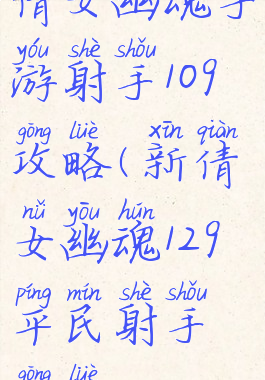 倩女幽魂手
yóu shè shǒu
游射手109
gōng lüè xīn qiàn
攻略(新倩
nǚ yōu hún
女幽魂129
píng mín shè shǒu
平民射手
gōng lüè